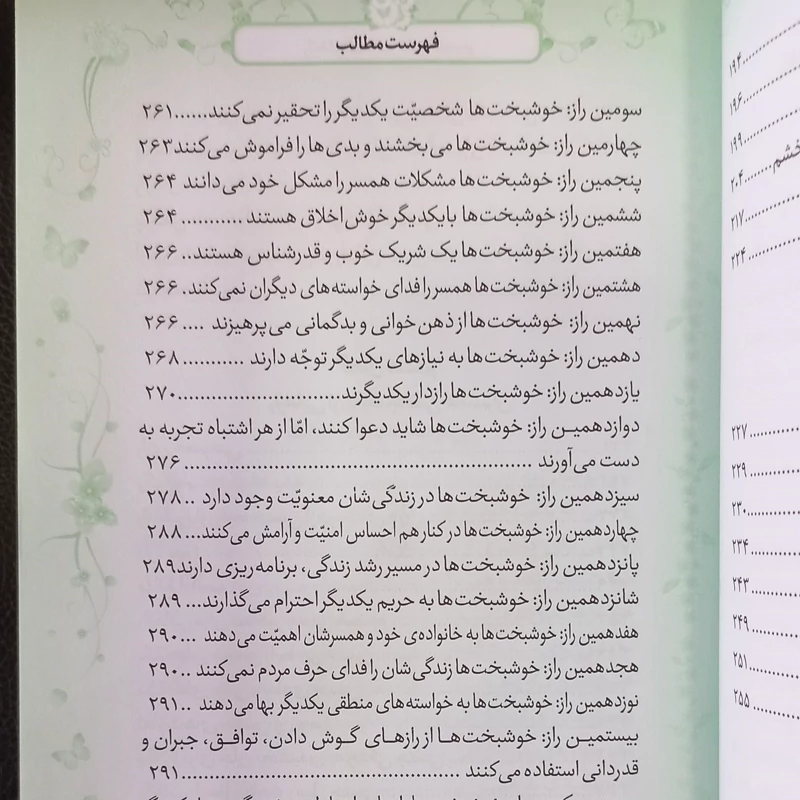 فهرست مطالب
سومین راز: خوشبخت‌ها شخصیّت یکدیگر را تحقیر نمی‌کنند......۲۶۱
چهارمین راز: خوشبخت‌ها می‌بخشند و بدی‌ها را فراموش می‌کنند۲۶۳
پنجمین راز: خوشبخت‌ها مشکلات همسر را مشکل خود می‌دانند ۲۶۴
ششمین راز: خوشبخت‌ها با یکدیگر خوش‌اخلاق هستند ........... ۲۶۴
هفتمین راز: خوشبخت‌ها یک شریک خوب و قدرشناس هستند.. ۲۶۶
هشتمین راز: خوشبخت‌ها همسر را فدای خواسته‌های دیگران نمی‌کنند. ۲۶۶
نهمین راز: خوشبخت‌ها از ذهن‌خوانی و بدگمانی می‌پرهیزند .... ۲۶۶
دهمین راز: خوشبخت‌ها به نیازهای یکدیگر توجّه دارند ........... ۲۶۸
یازدهمین راز: خوشبخت‌ها رازدار یکدیگرند.............................۲۷۰
دوازدهمین راز: خوشبخت‌ها شاید دعوا کنند، امّا از هر اشتباه تجربه به
دست می‌آورند ............................................................ ۲۷۶
سیزدهمین راز: خوشبخت‌ها در زندگی‌شان معنویّت وجود دارد .. ۲۷۸
چهاردهمین راز: خوشبخت‌ها در کنار هم احساس امنیّت و آرامش می‌کنند... ۲۸۸
پانزدهمین راز: خوشبخت‌ها در مسیر رشد زندگی، برنامه‌ریزی دارند۲۸۹
شانزدهمین راز: خوشبخت‌ها به حریم یکدیگر احترام می‌گذارند... ۲۸۹
هفدهمین راز: خوشبخت‌ها به خانواده‌ی خود و همسرشان اهمیّت می‌دهند ...۲۹۰
هجدهمین راز: خوشبخت‌ها زندگی‌شان را فدای حرف مردم نمی‌کنند ..۲۹۰
نوزدهمین راز: خوشبخت‌ها به خواسته‌های منطقی یکدیگر بها می‌دهند ..۲۹۱
بیستمین راز: خوشبخت‌ها از رازهای گوش دادن، توافق، جبران و
قدردانی استفاده می‌کنند ............................................۲۹۱
۱۹۴
۱۹۶
۱۹۹
خشم........۲۰۴
۲۱۷
۲۲۴
۲۲۷
۲۲۹
۲۳۰
۲۳۴
۲۴۳
۲۴۹
۲۵۱
۲۵۵